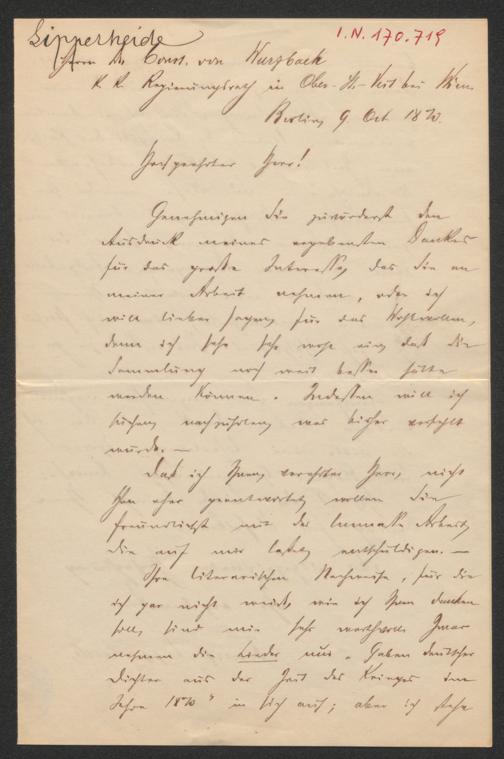 Lipperheide
I.N. 170.719
Herrn Dr. Const. von Wurzbach
K. K. Regierungsrath in Ober-St.-Veit bei Wien.
Berlin, 9 Oct 1870.
Hochgeehrter Herr!
Genehmigen Sie zuvörderst den
Ausdruck meines ergebensten Dankes
für das große Interesse, das Sie an
meiner Arbeit nehmen, oder ich
will lieber sagen, für das Wohlwollen,
denn ich sehe sehr wohl ein, daß die
Sammlung noch weit besser hätte
werden können. Indessen will ich
suchen, nachzuholen, was bisher verfehlt
wurde. —
Daß ich Ihnen, verehrter Herr, nicht
schon eher geantwortet, wollen Sie
freundlichst mit der Unmasse Arbeit,
die auf mir lastet, entschuldigen. —
Ihre literarischen Nachweise, für die
ich gar nicht weiß, wie ich Ihnen danken
soll, sind mir sehr werthvoll. Zwar
nehmen die Lieder nur „Gaben deutscher
Dichter aus der Zeit des Krieges im
Jahre 1870" in sich auf; aber ich stehe